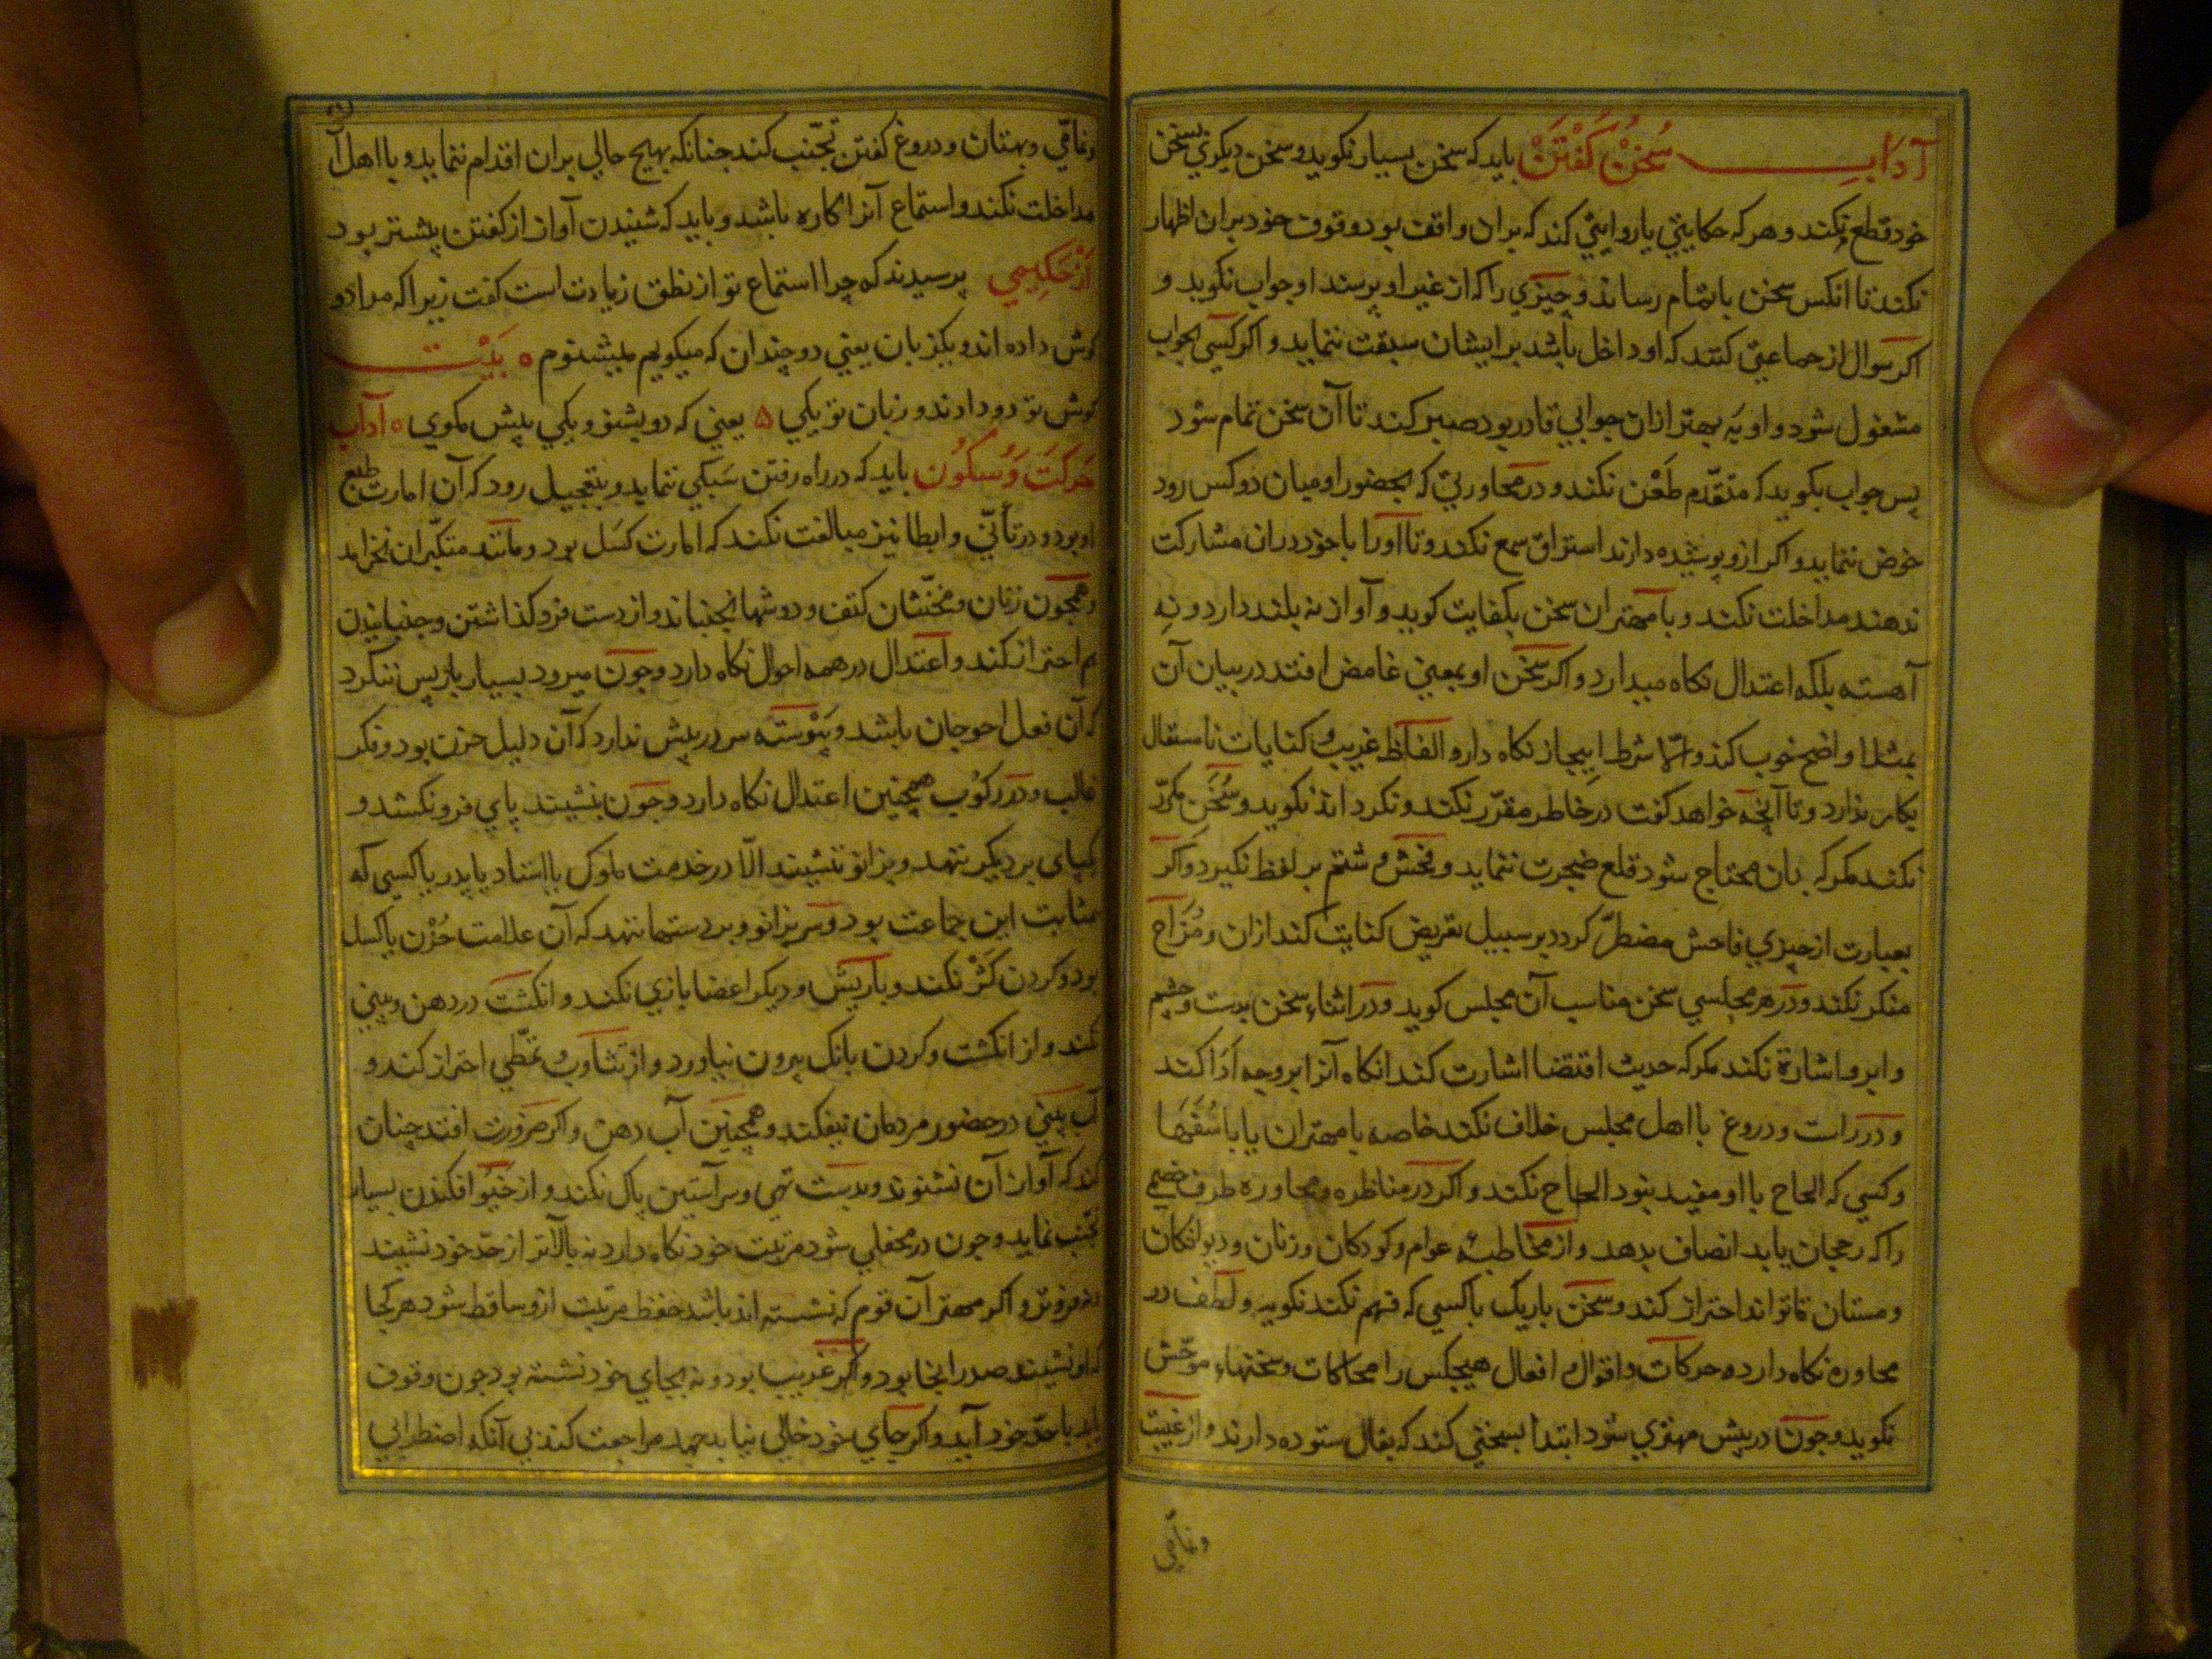 آدَابِ سُخَنْ كُفْتَنْ بايد كه سخن بسيار نكويد و سخن ديكري بسخن
خود قطع نكند و هر كه حكايتي يا روايتي كند كه بران واقف بود وقوف خود بران اظهار
نكند تا انكس سخن باتمام رساند و چيزي را كه از غير او پرسند او جواب نكويد و
اكر سوال از جماعتي كنند كه او داخل باشد بر ايشان سبقت ننمايد و اكر كسي بجواب
مشغول شود و او به بهتر ازان جوابي قادر بود صبر كند تا آن سخن تمام شود
پس جواب بكويد كه متقدّم طَعْن نكند و در محاورتي كه بحضور او ميان دو كس رود
خوض ننمايد و اكر ازو پوشيده دارند استراق سمع نكند و تا او را با خود دران مشاركت
ندهند مداخلت نكند و با مهتران سخن بكفايت كويد و آواز نه بلند دارد و نه
آهسته بلكه اعتدال نكاه ميدارد و اكر سخن او بمعني غامض افتد در بيان آن
بمثلها واضح خوب كند و الّا شرط ايجاز نكاه دارد و الفاظ غريب و كنايات نامستقال
بكار ندارد و تا آنچه خواهد كفت در خاطر مقرّر نكند و نكرداند نكويد و سُخَن مكرّر
نكند مكر كه بدان محتاج شود قلع ضجرت ننمايد و فحش و شتم بر لفظ نكيرد و اكر
بعبارت از چيزي فاحش مضطرّ كردد بر سبيل تعريض كنايت كند ازان و مُزَاح
منكر نكند و در هر مجلسي سخن مناسب آن مجلس كويد و در اثناء سخن بدست و چشم
و ابرو اشارة نكند مكر كه حديث اقتضا اشارت كند انكاه آنرا بر وجه اَدَا كند
و در راست و دروغ با اهل مجلس خلاف نكند خاصه با مهتران يا با سُفَهَا
و كسي كه الحاح با او مفيد نبود الحاح نكند و اكر در مناظره و محاوره طرف خصمي
را كه رجحان يابد انصاف بدهد و از مخاطبه عوام و كودكان و زنان و ديوانكان
و مستان تا تواند احتراز كند و سخن باريك با كسي كه فهم نكند نكويد و لطف در
محاوره نكاه دارد و حركات و اقوال و افعال هيچكس را محاكات و سخنهاء موحّش
نكويد و چون در پيش مهتري شود ابتدا بسخني كند كه بفال ستوده دارند و از غيبت
و نمّامي
و نمّامي و بهتان و دروغ كفتن تجنّب كند چنانكه بهيچ حالي بران اقدام ننمايد و با اهل آن
مداخلت نكند و استماع آنرا كاره باشد و بايد كه شنيدن آواز از كفتن بيشتر بود
اَزْ حَكِيمِي پرسيدند كه چرا استماع تو از نطق زيادت است كفت زيرا كه مرا دو
كوش داده اند و يكزبان يعني دو چندان كه ميكويم ميشنوم ه بَيْت
كوش تو دو دادند و زبان تو يكي ۵ يعني كه دو بشنو و يكي بيش مكوي ه آدَاب
حَرَكَت وَ سُكُون بايد كه در راه رفتن سَبكي ننمايد و بتعجيل رود كه آن امارت طيش
او بود و در تأنّي و ابطا نيز مبالغت نكند كه امارت كسَل بود و مانند متكبّران نخرامد
و همچون زنان و مخنّثان كتف و دوشها نجنباند و از دست فرو كذاشتن و جنبانيدن
هم احتراز كند و اعتدال در همه احوال نكاه دارد و چون ميرود بسيار باز پس ننكرد
كه آن فعل اهوجان باشد و پَيْوسته سر در پيش ندارد كه آن دليل حزن بود و فكر
غالب و در ركُوب همچنين اعتدال نكاه دارد و چون بنشيند پاي فرو نكشد و
يكپاى بر ديكر ننهد و بزانو ننشيند الّا در خدمت ملوك يا استاد يا پدر يا كسي كه
بمثابت اين جماعت بود و سر بزانو و بر دستها ننهد كه آن علامت حُزْن يا كسل
بود و كردن كَژْ نكند و با ريش و ديكر اعضا بازي نكند و انكشت در دهن و بيني
نكند و از انكشت و كردن بانك بيرون نياورد و از تثاوب و تمطّي احتراز كند و
آب بيني در حضور مردمان نيفكند و همچنين آب دهن و اكر ضرورت افتد چنان
كند كه آواز آن نشنوند و بدست تهي و سر آستين پاك نكند و از خيو افكندن بسيار
تجنّب نمايد و چون در محفلي شود مرتبت خود نكاه دارد نه بالاتر از حدّ خود نشيند
و نه فروتر و اكر مهتر آن قوم كه نشسته اند باشد حفظ مرتبت ازو ساقط شود هر كجا
كه او نشيند صدر انجا بود و اكر غريب بود و نه بجاي خود نشسته بود چون وقوف
يابد با حدّ خود آيد و اكر جاي خود خالي نيابد جهد مراجعت كند بي آنكه اضطرابي